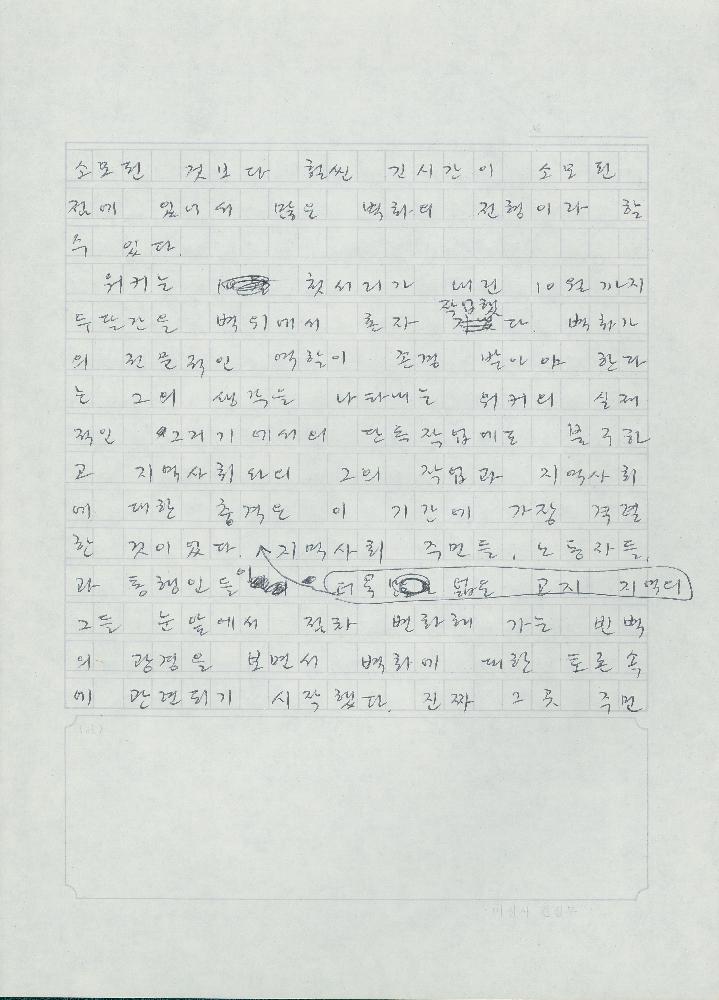 소모된 것보다 훨씬 긴시간이 소모된
점에 있어서 많은 벽화의 전형이라 할
수 있다.
워커는 첫서리가 내린 10월까지
두달간을 벽위에서 혼자 작업했다. 벽화가
의 전문적인 역할이 존경 받아야 한다
는 그의 생각을 나타내는 워커의 실제
적인 그리기에서의 단독작업에도 불구하
고 지역사회와의 그의 작업과 지역사회
에 대한 충격은 이 기간에 가장 격렬
한 것이었다. 지역사회 주민들, 노동자들,
과 통행인들이 더욱 넓은 고지 지역의
그들 눈앞에서 점차 변화해 가는 반벽
의 광경을 보면서 벽화에 대한 토론속
에 관련되기 시작했다. 진짜 그곳 주민